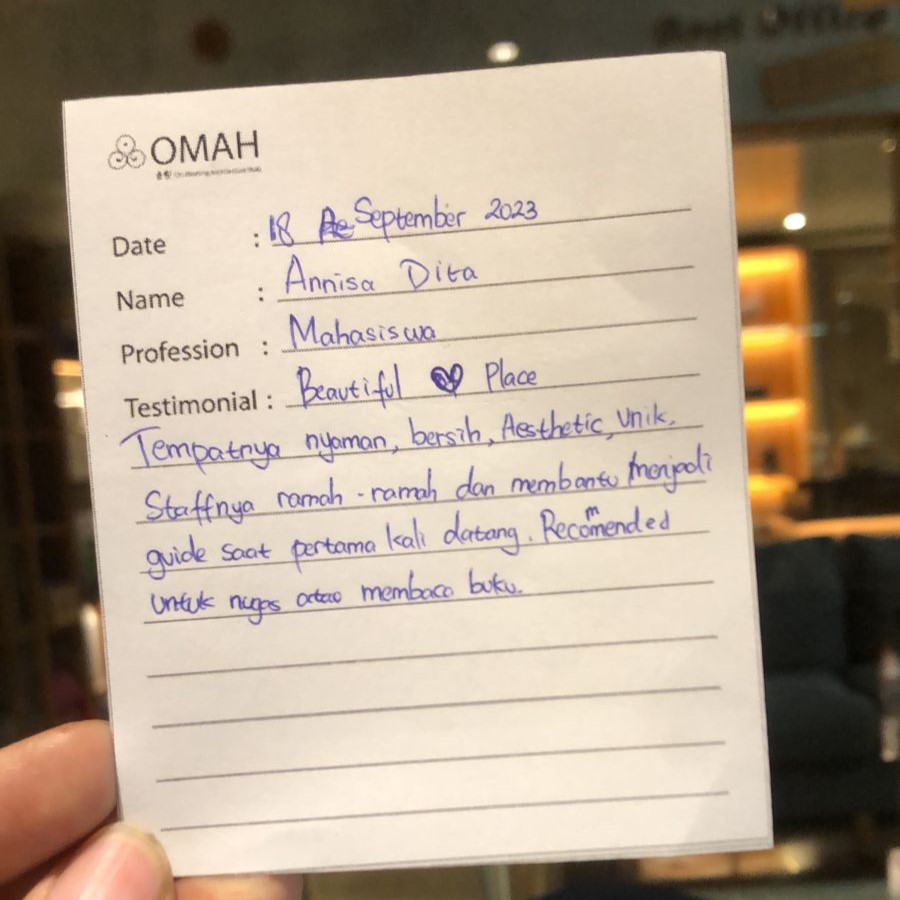 OMAH
Date : 18 September 2023
Name : Annisa Dita
Profession : Mahasiswa
Testimonial : Beautiful Place
Tempatnya nyaman, bersih, Aesthetic, Unik.
Staffnya ramah - ramah dan membantu menjadi
guide saat pertama kali datang. Recommended
untuk nugas atau membaca buku.